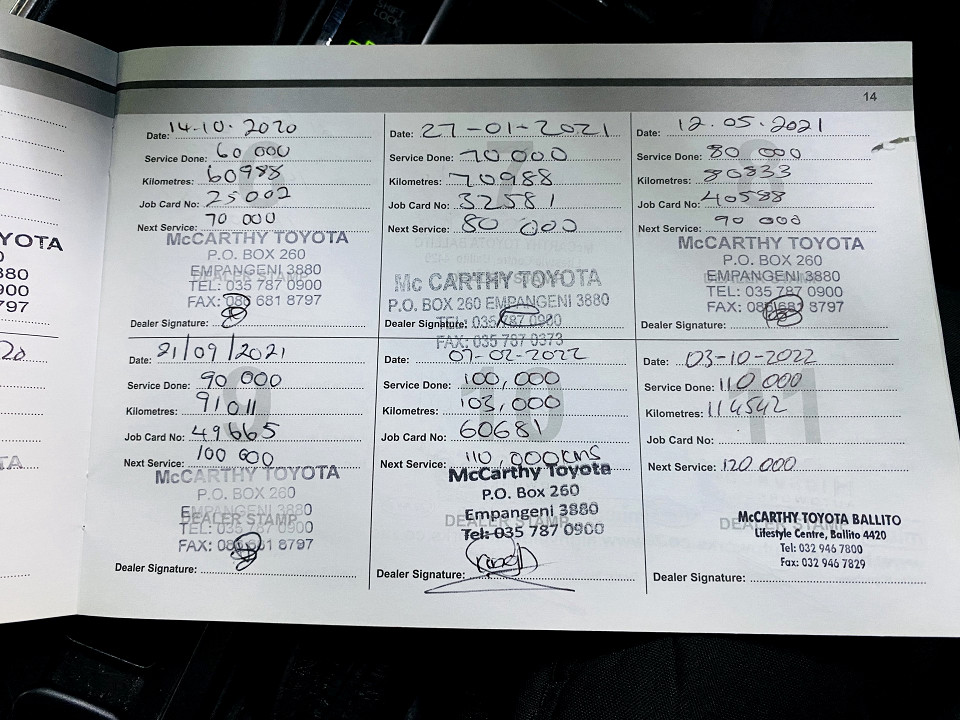 SHIFT
LOCK
14
YOTA
380
900
797
20
TA
6
Date: 14.10.2020
Service Done: 60 000
Kilometres: 60988
Job Card No: 25002
Next Service: 70 000
McCARTHY TOYOTA
P.O. BOX 260
EMPANGENI 3880
DEALER STAMP
TEL: 035 787 0900
FAX: 086 681 8797
Dealer Signature:
7
Date: 27-01-2021
Service Done: 70 000
Kilometres: 70988
Job Card No: 32581
Next Service: 80 000
Mc CARTHY TOYOTA
P.O. BOX 260 EMPANGENI 3880
TEL: 035 787 0900
FAX: 035 787 0373
Dealer Signature:
8
Date: 12.05.2021
Service Done: 80 000
Kilometres: 80833
Job Card No: 40588
Next Service: 90 000
McCARTHY TOYOTA
P.O. BOX 260
EMPANGENI 3880
TEL: 035 787 0900
FAX: 086 681 8797
Dealer Signature:
9
Date: 21/09/2021
Service Done: 90 000
Kilometres: 91011
Job Card No: 49665
Next Service: 100 000
McCARTHY TOYOTA
P.O. BOX 260
EMPANGENI 3880
DEALER STAMP
TEL: 035 787 0900
FAX: 086 681 8797
Dealer Signature:
10
Date: 07-02-2022
Service Done: 100,000
Kilometres: 103,000
Job Card No: 60681
Next Service: 110,000kms
McCarthy Toyota
P.O. Box 260
Empangeni 3880
DEALER STAMP
Tel: 035 787 0900
Dealer Signature:
11
Date: 03-10-2022
Service Done: 110 000
Kilometres: 114542
Job Card No:
Next Service: 120 000
McCARTHY TOYOTA BALLITO
DEALER STAMP
Lifestyle Centre, Ballito 4420
Tel: 032 946 7800
Fax: 032 946 7829
Dealer Signature: